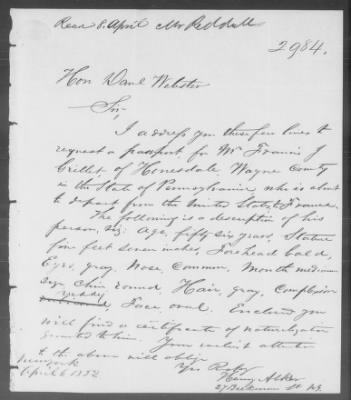 Recd 8. April Mr Reddall
2984.
Hon Danl Webster
Sir,
I address you these few lines to
request a passport for Mr Francis J
Grillet of Honesdale, Wayne County
in the State of Pennsylvania who is about
to depart from the United States to France.
The following is a description of his
person, viz: Age, fifty six years, Stature
five feet seven inches, Forehead bald,
Eyes, gray, Nose, Common, Mouth medium
size, Chin round, Hair, gray, Complexion
ruddy, Face, oval. Enclosed you
will find a certificate of naturalization
granted to him. Your earliest attention
to the above will oblige
Yrs Resply
Henry Alker
27 Beekman St N.Y.
New York
April 6 1852